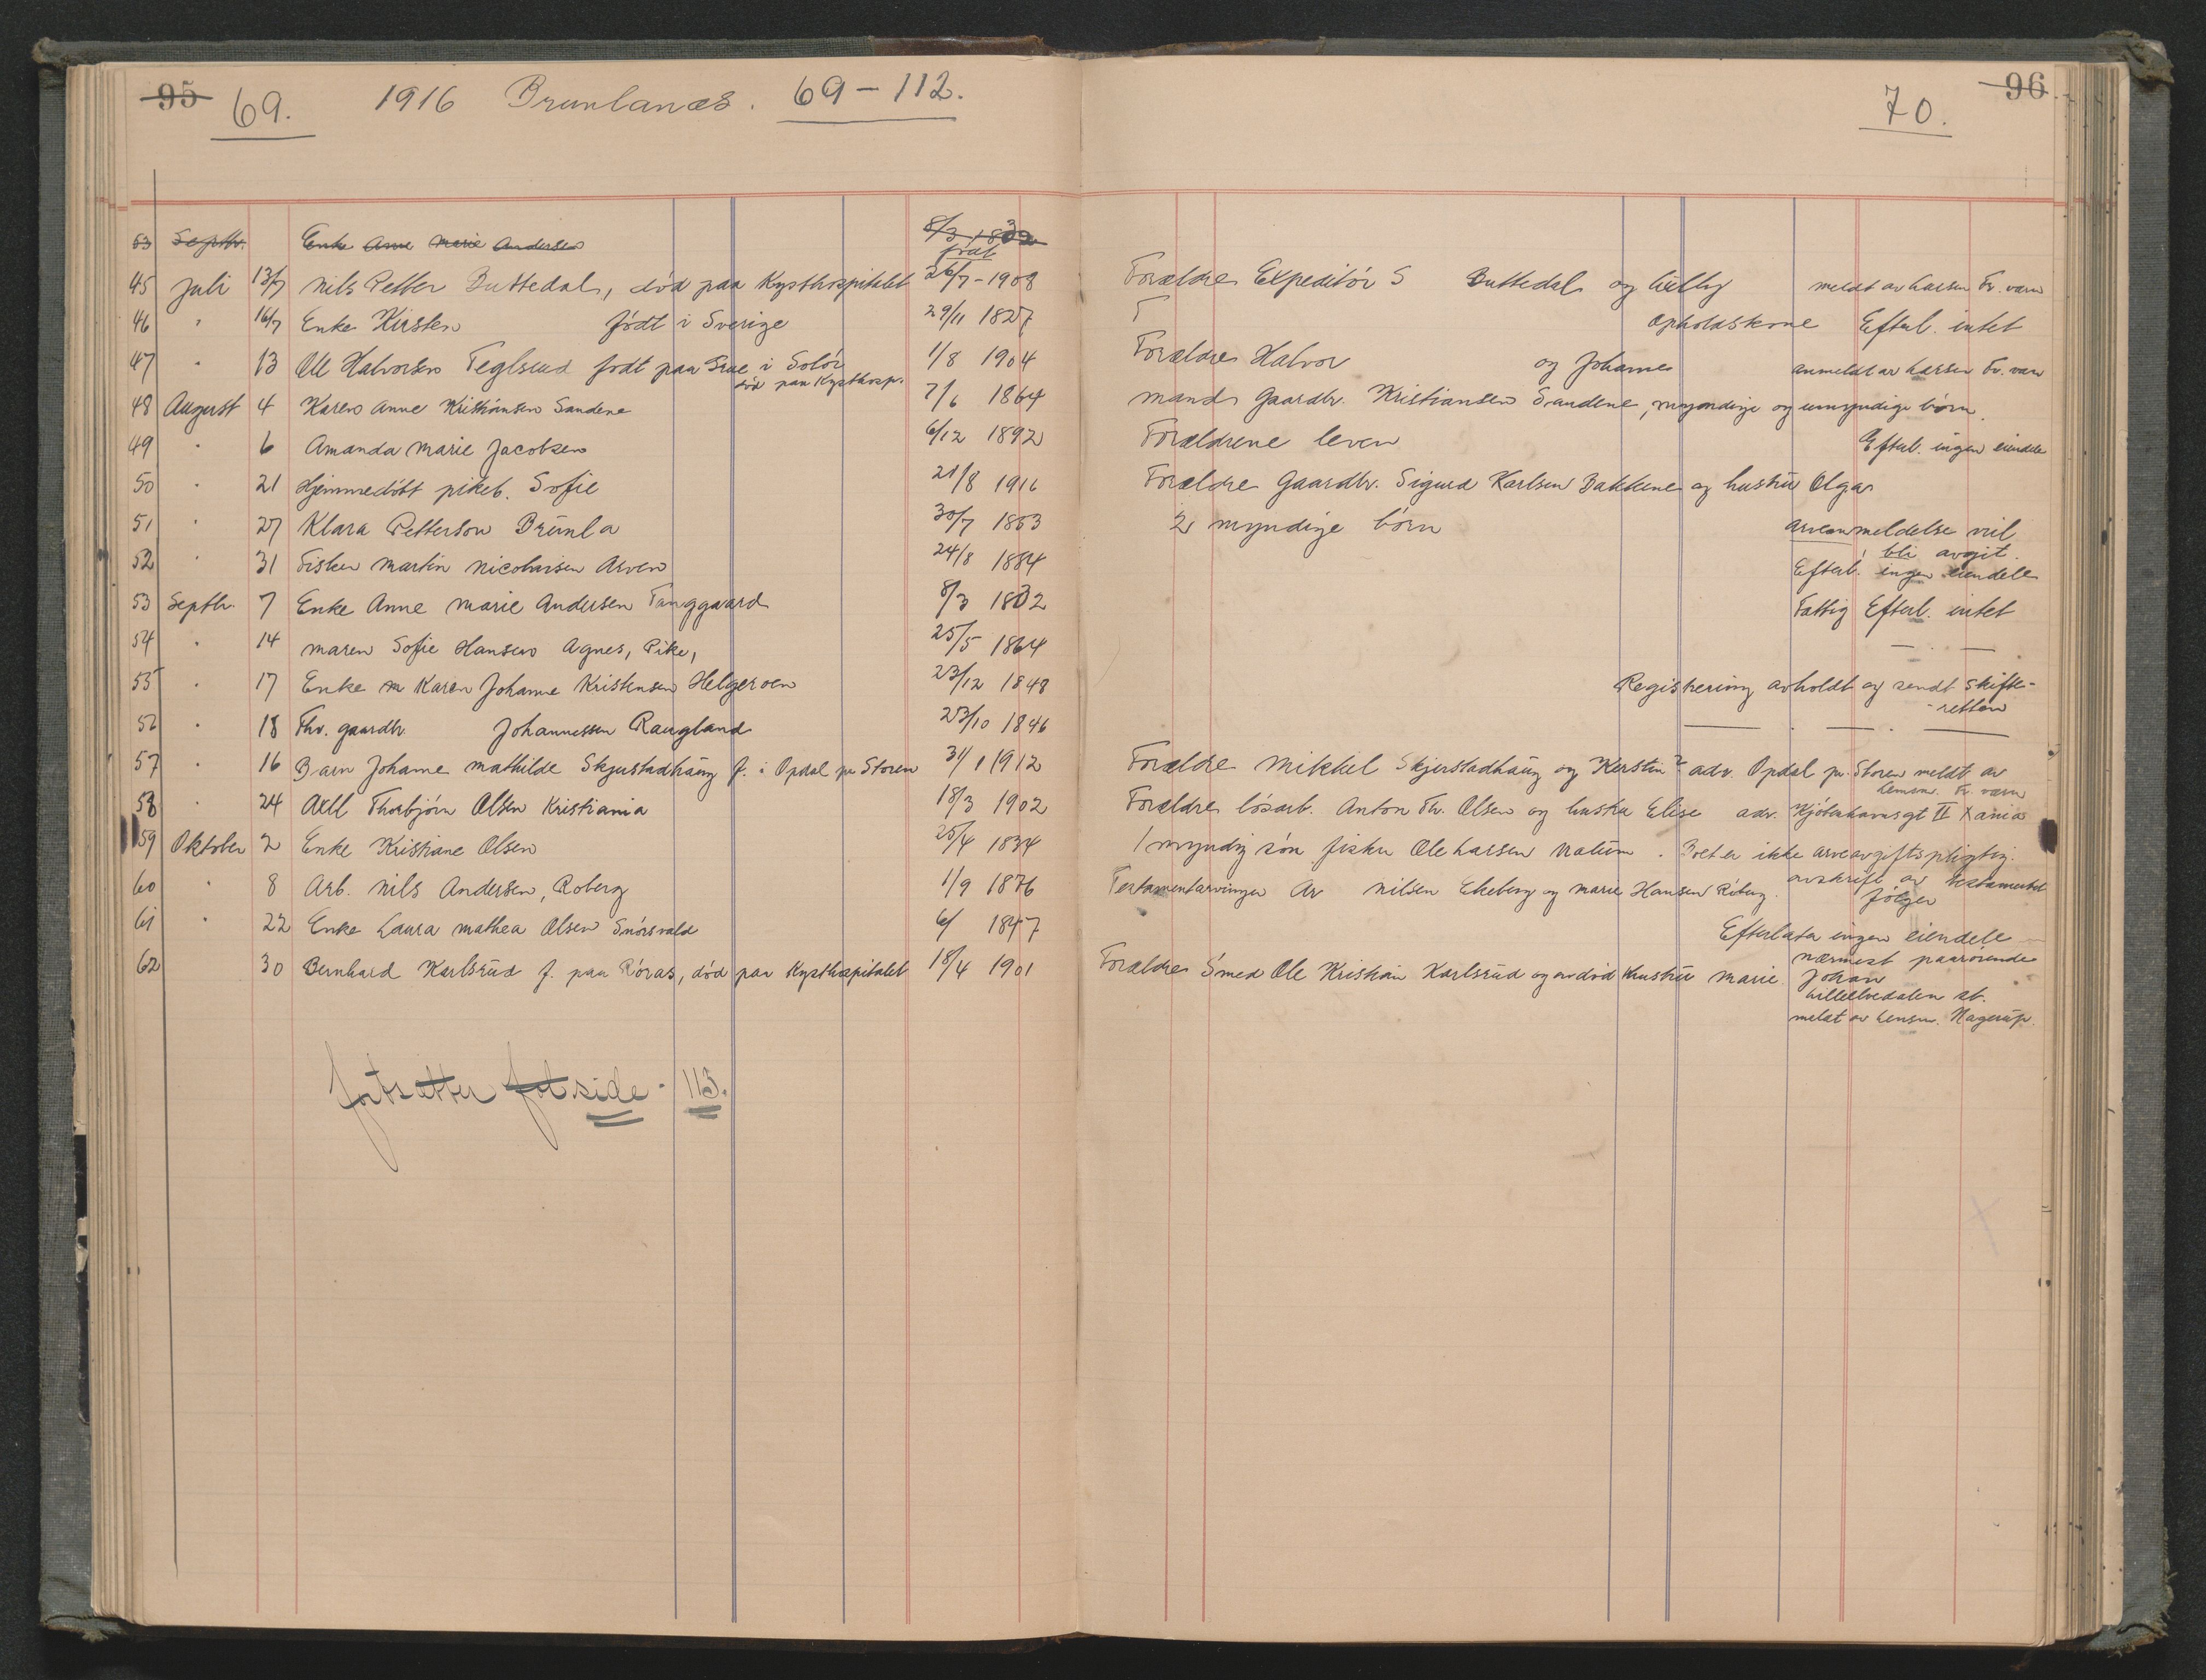 95 69. 1916 Brunlanæs. 69-112. 70. 96.
53 Septbr. Enke Anne Marie Andersen 8/3 1832
født
45 Juli 13/7 Nils Petter Buttedal, død paa Kysthospitalet 26/7-1908 Forældre Expeditør S Buttedal og meldt av Larsen Fr. værn
46 " 16/7 Enke Kirsten født i Sverige 29/11 1827 Opholdskone Efterl. intet
47 " 13 Ole Halvorsen Teglsrud født paa Grue i Solør 1/8 1904 Forældre Halvor og Johanne anmeldt av Larsen Fr. værn
død paa Kysthosp.
48 August 4 Karen Anne Kristiansen Sandene 7/6 1864 mand Gaardbr. Kristiansen Sandene, myndige og umyndige børn.
49 " 6 Amanda Marie Jacobsen 6/12 1892 Forældrene lever Efterl. ingen eiendele
50 " 21 Hjemmedøbt pikeb. Sofie 21/8 1916 Forældre Gaardbr. Sigurd Karlsen Bakkene og hustru Olga
51 " 27 Klara Petterson Brunla 30/7 1853 2 myndige børn arveanmeldelse vil
bli avgit.
52 " 31 Fisker Martin Nicolaisen Arven 24/8 1884 Efterl. ingen eiendele
53 Septbr. 7 Enke Anne Marie Andersen Fanggaard 8/3 1832 Fattig Efterl. intet
54 " 14 Maren Sofie Hansen Agnes, Pike, 25/5 1864 — " —
55 " 17 Enke Karen Johanne Kristensen Helgeroen 23/12 1848 Registrering avholdt og sendt skifte-
retten
56 " 18 Fhv. gaardbr. Johannessen Raugland 23/10 1846 — " — " —
57 " 16 Barn Johanne Mathilde Skjerstadhaug f. i Opdal pr Støren 31/1 1912 Forældre Mikkel Skjerstadhaug og Kerstin adr. Opdal pr. Støren meldt av
Lensm. Fr. værn
58 " 24 Axel Thorbjørn Olsen Kristiania 18/3 1902 Forældre løsarb. Anton Th. Olsen og hustru Elise adr. Kjøbenhavnsgt II Xania
59 Oktober 2 Enke Kristiane Olsen 25/4 1834 1 myndig søn fisker Ole Larsen Nalum. Boet er ikke arveavgiftspligtig.
60 " 8 Arb. Nils Andersen, Roberg 1/9 1876 Testamentarvinger Ar Nilsen Ekeberg og Marie Hansen Roberg. avskrift av testamentet
følger
61 " 22 Enke Laura Mathea Olsen Snørsvald 6/ 1847 Efterlater ingen eiendele
62 30 Bernhard Karlsrud f. paa Røros, død paa Kysthospitalet 18/4 1901 Forældre Smed Ole Kristian Karlsrud og avdød hustru Marie. nærmest paarørende
Johan
Lilleelvedalen st.
meldt av Lensm. Nagerup.
fortsætter fol side. 113.